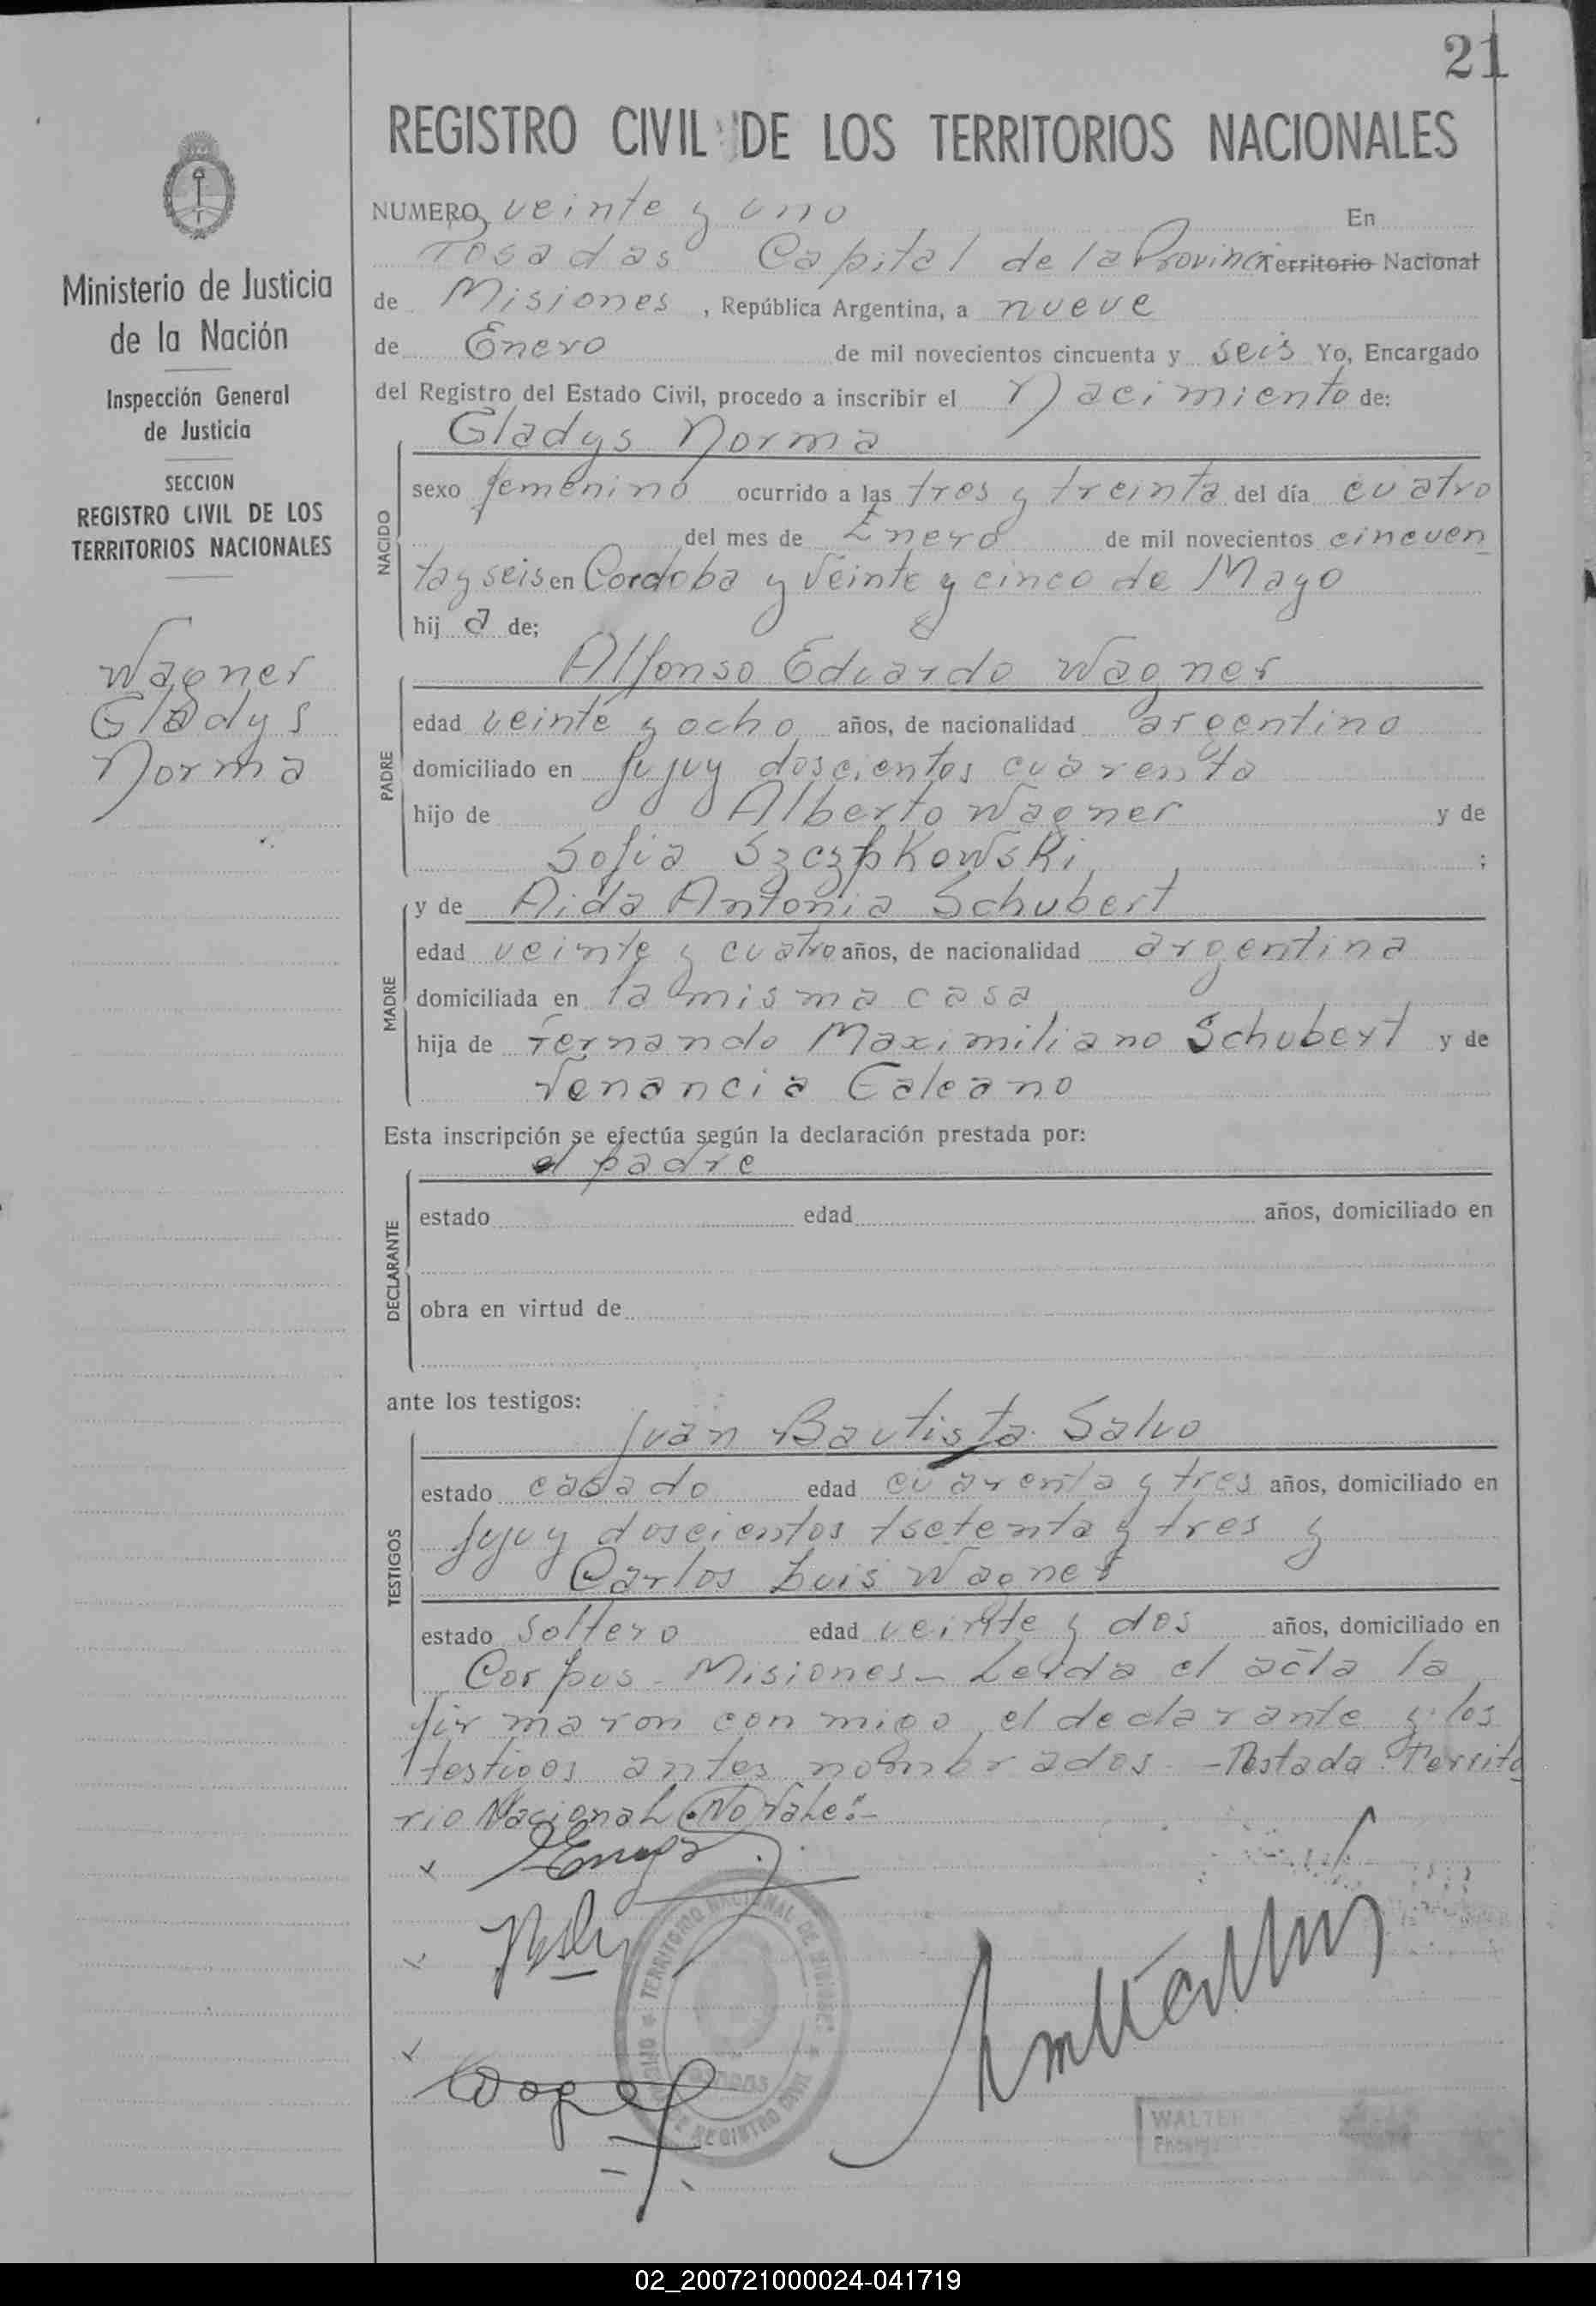 21
REGISTRO CIVIL DE LOS TERRITORIOS NACIONALES
Ministerio de Justicia
de la Nación
Inspección General
de Justicia
SECCION
REGISTRO CIVIL DE LOS
TERRITORIOS NACIONALES
Wagner
Gladys
Norma
NUMERO veinte y uno En
Posadas Capital de la Provincia Territorio Nacional
de Misiones , República Argentina, a nueve
de Enero de mil novecientos cincuenta y seis Yo, Encargado
del Registro del Estado Civil, procedo a inscribir el Nacimiento de:
Gladys Norma
NACIDO
sexo femenino ocurrido a las tres y treinta del día cuatro
del mes de Enero de mil novecientos cincuen
ta y seis en Cordoba y Veinte y cinco de Mayo
hij a de;
Alfonso Eduardo Wagner
PADRE
edad veinte y ocho años, de nacionalidad argentino
domiciliado en Jujuy doscientos cuarenta
hijo de Alberto Wagner y de
Sofia Szczpkowski ;
y de Aida Antonia Schubert
MADRE
edad veinte y cuatro años, de nacionalidad argentina
domiciliada en la misma casa
hija de Fernando Maximiliano Schubert y de
Venancia Galeano
Esta inscripción se efectúa según la declaración prestada por:
el padre
DECLARANTE
estado edad años, domiciliado en
obra en virtud de
ante los testigos:
Juan Bautista Salvo
TESTIGOS
estado casado edad cuarenta y tres años, domiciliado en
Jujuy doscientos setenta y tres y
Carlos Luis Wagner
estado soltero edad veinte y dos años, domiciliado en
Corpus - Misiones - Leida el acta la
firmaron con migo, el declarante y los
testigos antes nombrados. - Testada: Territo
rio Nacional. No Vale:-
TERRITORIO NACIONAL DE MISIONES
REGISTRO CIVIL
WALTER
02_200721000024-041719